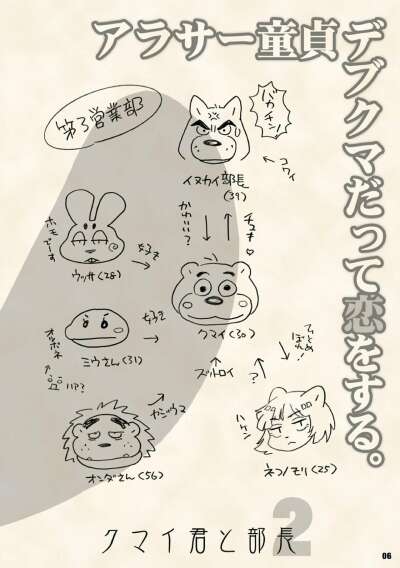 アラサー童貞デブクマだって恋をする。
第3営業部
バカチン!
コワイ
イヌカイ部長
(39)
かわいい?
チュキ♡
ホモでーす
ウッサ(28)
好き
クマイ(30)
ミウさん(31)
好き
ズットロイ
?
ハケン
ネコノモリ(25)
ヤジウマ
オンダさん(56)
クマイ君と部長
2
06